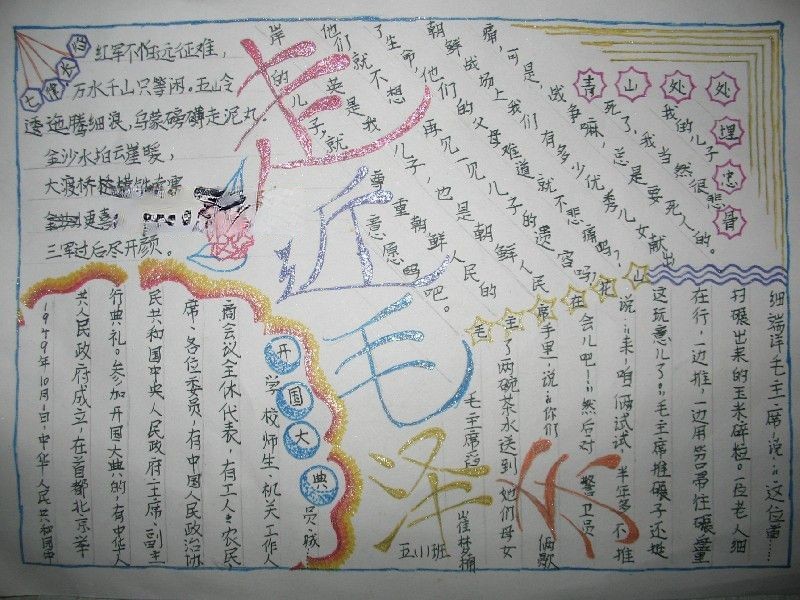 七律长征
红军不怕远征难，
万水千山只等闲。五岭
逶迤腾细浪，乌蒙磅礴走泥丸
金沙水拍云崖暖，
大渡桥横
更喜
三军过后尽开颜。
走近毛泽东
青山处处埋忠骨
痛，可是，战争嘛，总是要死人的。
朝鲜战场上我们有多少优秀儿女献出
了生命，他们的父母难道就不悲痛吗？
他们就不想再见一见儿子的遗容吗？
岸英是我的儿子，也是朝鲜人民的
儿子，就尊重朝鲜人民的意愿吧。
死了，我当然很悲
我的儿子
毛主席在花山
细端详毛主席，说：“这位首……
打碾出来的玉米碎粒。一位老人细
在行，一边推，一边用笤帚往碾盘里
这玩意儿了。”毛主席推碾子还挺
说：“来，咱俩试试，半年多不推
会儿吧！”然后对警卫员
席手里，说：“你们俩歇
了两碗茶水送到她们母女
毛主席
五（1）班
开国大典
学校师生、机关工作人员、城
商会议全体代表，有工人、农民
席、各位委员，有中国人民政治协
民共和国中央人民政府主席、副主
行典礼。参加开国大典的，有中华人
共人民政府成立，在首都北京举
1949年10月1日，中华人民共和国中